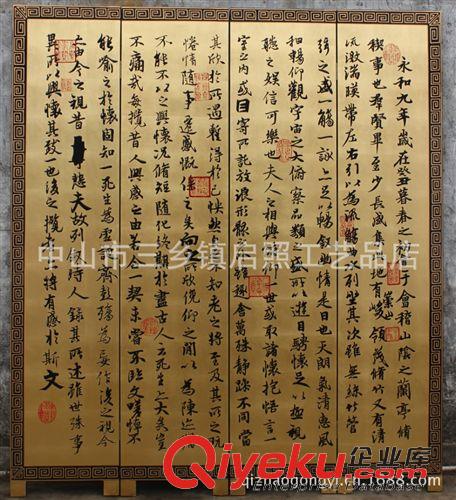 永和九年歲在癸丑暮春之初會于會稽山陰之蘭亭脩
禊事也群賢畢至少長咸集此地有峻領茂林脩竹又有清
流激湍映帶左右引以為流觴曲水列坐其次雖無絲竹管
弦之盛一觴一詠亦足以暢敘幽情是日也天朗氣清惠風
和暢仰觀宇宙之大俯察品類之盛所以遊目騁懷足以極視
聽之娛信可樂也夫人之相與俯仰一世或取諸懷抱悟言一
室之內或因寄所託放浪形骸之外雖趣舍萬殊靜躁不同當
其欣於所遇暫得於己快然自足不知老之將至及其所之既
惓情隨事遷感慨係之矣向之所欣俛仰之閒以為陳迹猶
不能不以之興懷況脩短隨化終期於盡古人云死生亦大矣豈
不痛哉每攬昔人興感之由若合一契未嘗不臨文嗟悼不
能喻之於懷固知一死生為虛誕齊彭殤為妄作後之視今
亦由今之視昔悲夫故列敘時人錄其所述雖世殊事
異所以興懷其致一也後之攬者亦將有感於斯文
中山市三乡镇启照工艺品店
Qiyeku.com 企业库
qiznaogongyi.cn.1688.com